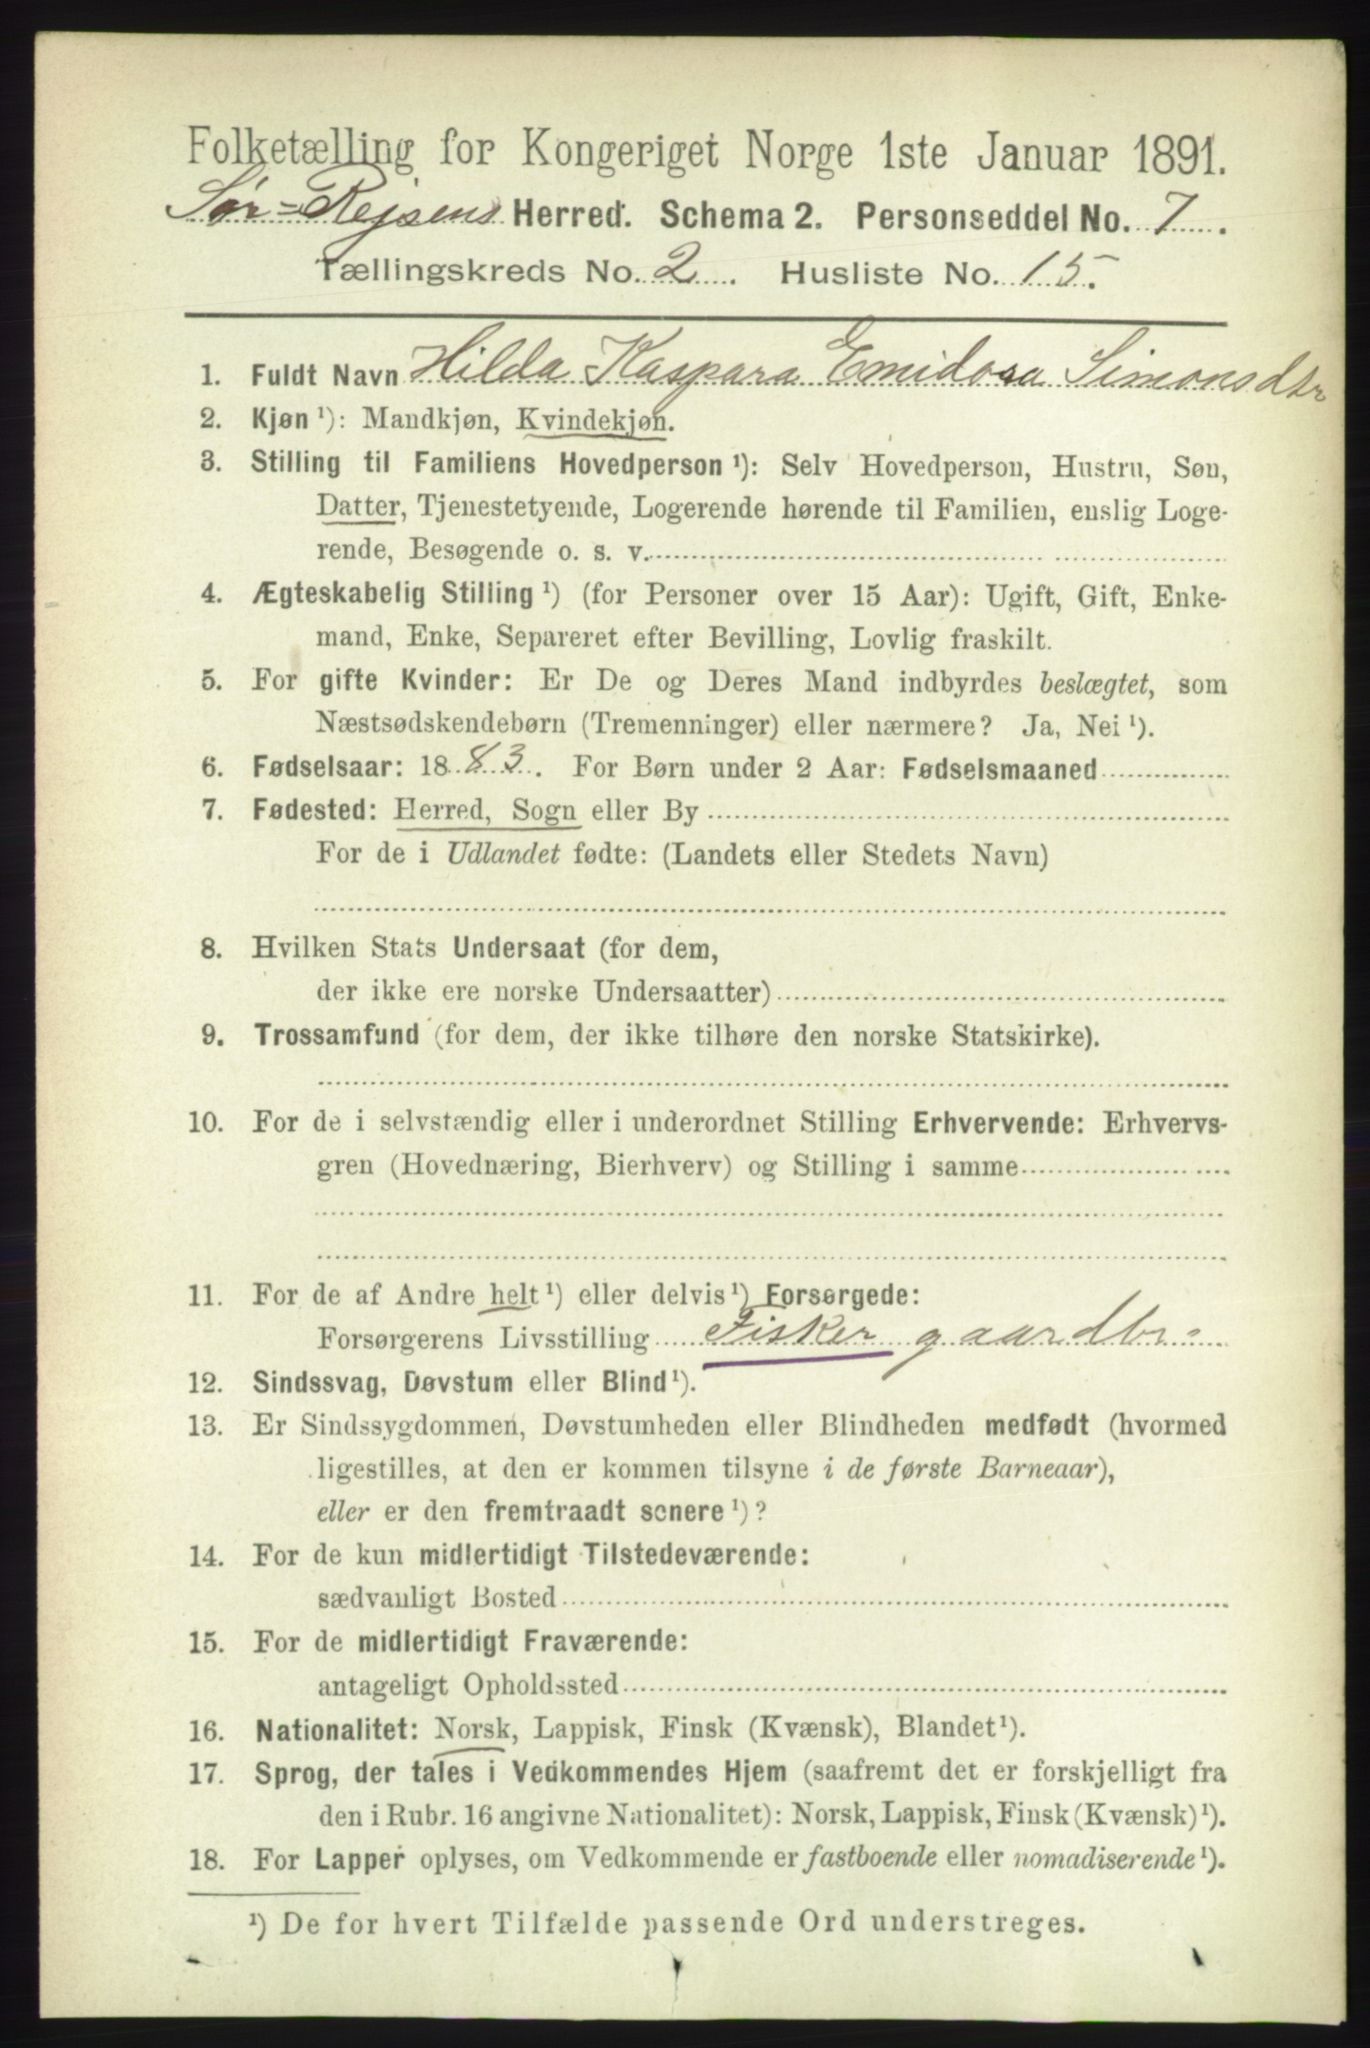 Folketælling for Kongeriget Norge 1ste Januar 1891.
Sør-Rejsens Herred. Schema 2. Personseddel No. 7.
Tællingskreds No. 2. Husliste No. 15.
1. Fuldt Navn Hilda Kaspara Simonsdtr
2. Kjøn ¹): Mandkjøn, Kvindekjøn.
3. Stilling til Familiens Hovedperson ¹): Selv Hovedperson, Hustru, Søn,
Datter, Tjenestetyende, Logerende hørende til Familien, enslig Loge-
rende, Besøgende o. s. v.
4. Ægteskabelig Stilling ¹) (for Personer over 15 Aar): Ugift, Gift, Enke-
mand, Enke, Separeret efter Bevilling, Lovlig fraskilt.
5. For gifte Kvinder: Er De og Deres Mand indbyrdes beslægtet, som
Næstsødskendebørn (Tremenninger) eller nærmere? Ja, Nei ¹).
6. Fødselsaar: 1883. For Børn under 2 Aar: Fødselsmaaned
7. Fødested: Herred, Sogn eller By
For de i Udlandet fødte: (Landets eller Stedets Navn)
8. Hvilken Stats Undersaat (for dem,
der ikke ere norske Undersaatter)
9. Trossamfund (for dem, der ikke tilhøre den norske Statskirke).
10. For de i selvstændig eller i underordnet Stilling Erhvervende: Erhvervs-
gren (Hovednæring, Bierhverv) og Stilling i samme
11. For de af Andre helt ¹) eller delvis ¹) Forsørgede:
Forsørgerens Livsstilling Fisker gaardbr.
12. Sindssvag, Døvstum eller Blind ¹).
13. Er Sindssygdommen, Døvstumheden eller Blindheden medfødt (hvormed
ligestilles, at den er kommen tilsyne i de første Barneaar),
eller er den fremtraadt senere ¹)?
14. For de kun midlertidigt Tilstedeværende:
sædvanligt Bosted
15. For de midlertidigt Fraværende:
antageligt Opholdssted
16. Nationalitet: Norsk, Lappisk, Finsk (Kvænsk), Blandet ¹).
17. Sprog, der tales i Vedkommendes Hjem (saafremt det er forskjelligt fra
den i Rubr. 16 angivne Nationalitet): Norsk, Lappisk, Finsk (Kvænsk) ¹).
18. For Lapper oplyses, om Vedkommende er fastboende eller nomadiserende ¹).
¹) De for hvert Tilfælde passende Ord understreges.